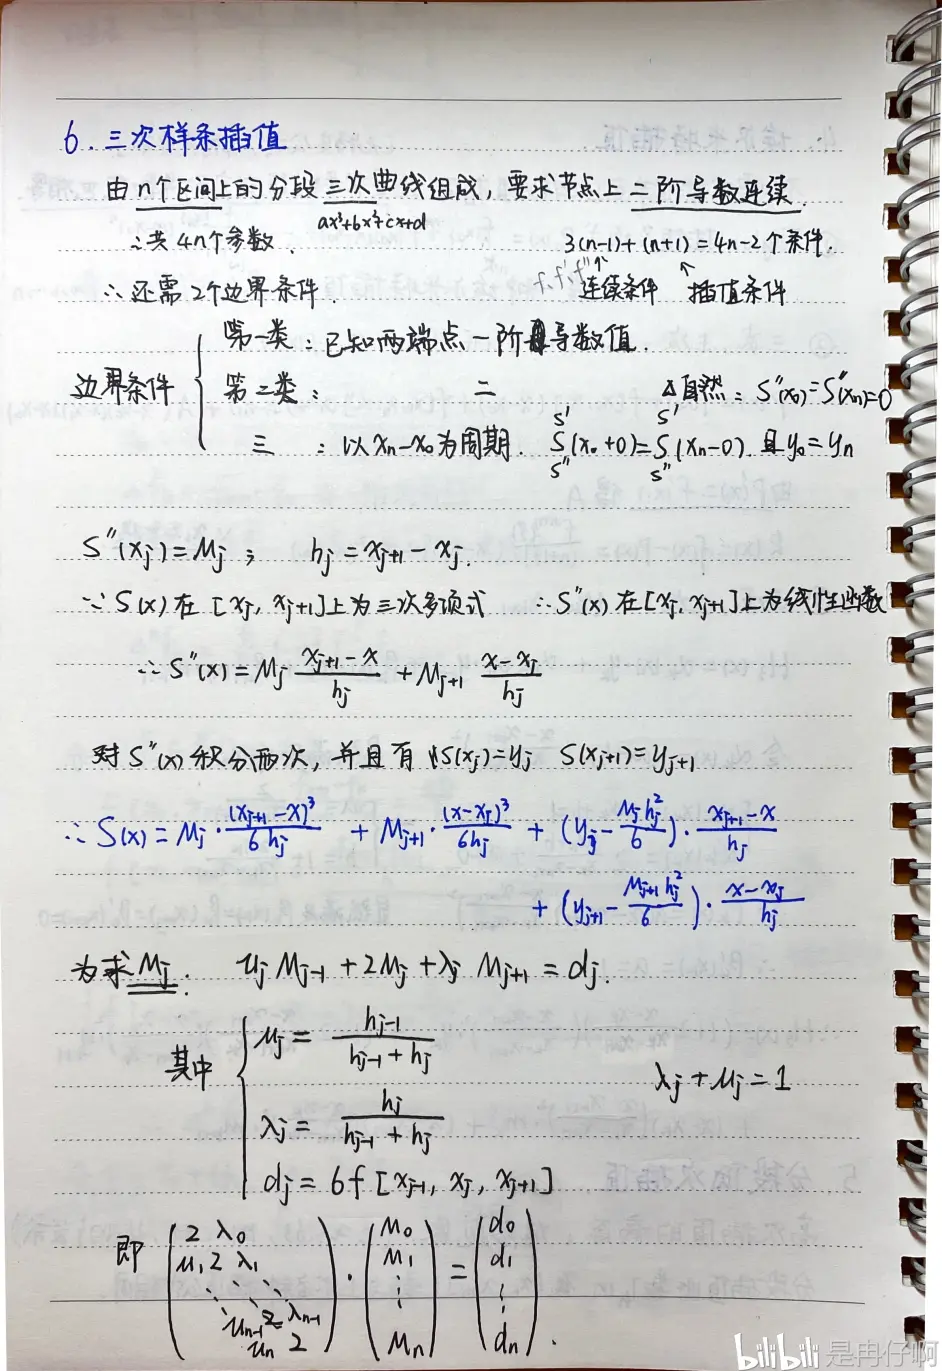 6. 三次样条插值
由n个区间上的分段三次曲线组成, 要求节点上二阶导数连续.
ax³+bx²+cx+d
∴共4n个参数. 3(n-1)+(n+1)=4n-2个条件.
∴还需2个边界条件. f, f', f'' ↑连续条件 ↑插值条件
边界条件 { 第一类: 已知两端点一阶导数值.
第二类: 二 Δ自然: S''(x₀)=S''(xₙ)=0
三 : 以xₙ-x₀为周期. S(x₀+0)=S(xₙ-0). 且y₀=yₙ
S' S'
S'' S''
S''(xⱼ)=Mⱼ; hⱼ=xⱼ₊₁-xⱼ.
∵S(x)在[xⱼ, xⱼ₊₁]上为三次多项式 ∴S''(x)在[xⱼ, xⱼ₊₁]上为线性函数
∴S''(x)=Mⱼ (xⱼ₊₁-x)/hⱼ + Mⱼ₊₁ (x-xⱼ)/hⱼ
对S''(x)积分两次, 并且有 S(xⱼ)=yⱼ S(xⱼ₊₁)=yⱼ₊₁
∴S(x)=Mⱼ·(xⱼ₊₁-x)³/6hⱼ + Mⱼ₊₁·(x-xⱼ)³/6hⱼ + (yⱼ-Mⱼhⱼ²/6)·(xⱼ₊₁-x)/hⱼ
+ (yⱼ₊₁-Mⱼ₊₁hⱼ²/6)·(x-xⱼ)/hⱼ
为求Mⱼ. μⱼMⱼ₋₁+2Mⱼ+λⱼMⱼ₊₁=dⱼ.
其中 { μⱼ= hⱼ₋₁/(hⱼ₋₁+hⱼ)
λⱼ+μⱼ=1
λⱼ= hⱼ/(hⱼ₋₁+hⱼ)
dⱼ=6f[xⱼ₋₁, xⱼ, xⱼ₊₁]
即 (2 λ₀ )·(M₀)=(d₀)
(μ₁ 2 λ₁ ) (M₁) (d₁)
(⋱ ⋱ ⋱ ) (⋮) (⋮)
(μₙ₋₁ 2 λₙ₋₁)
(μₙ 2) (Mₙ) (dₙ).
bilibili 是电仔啊